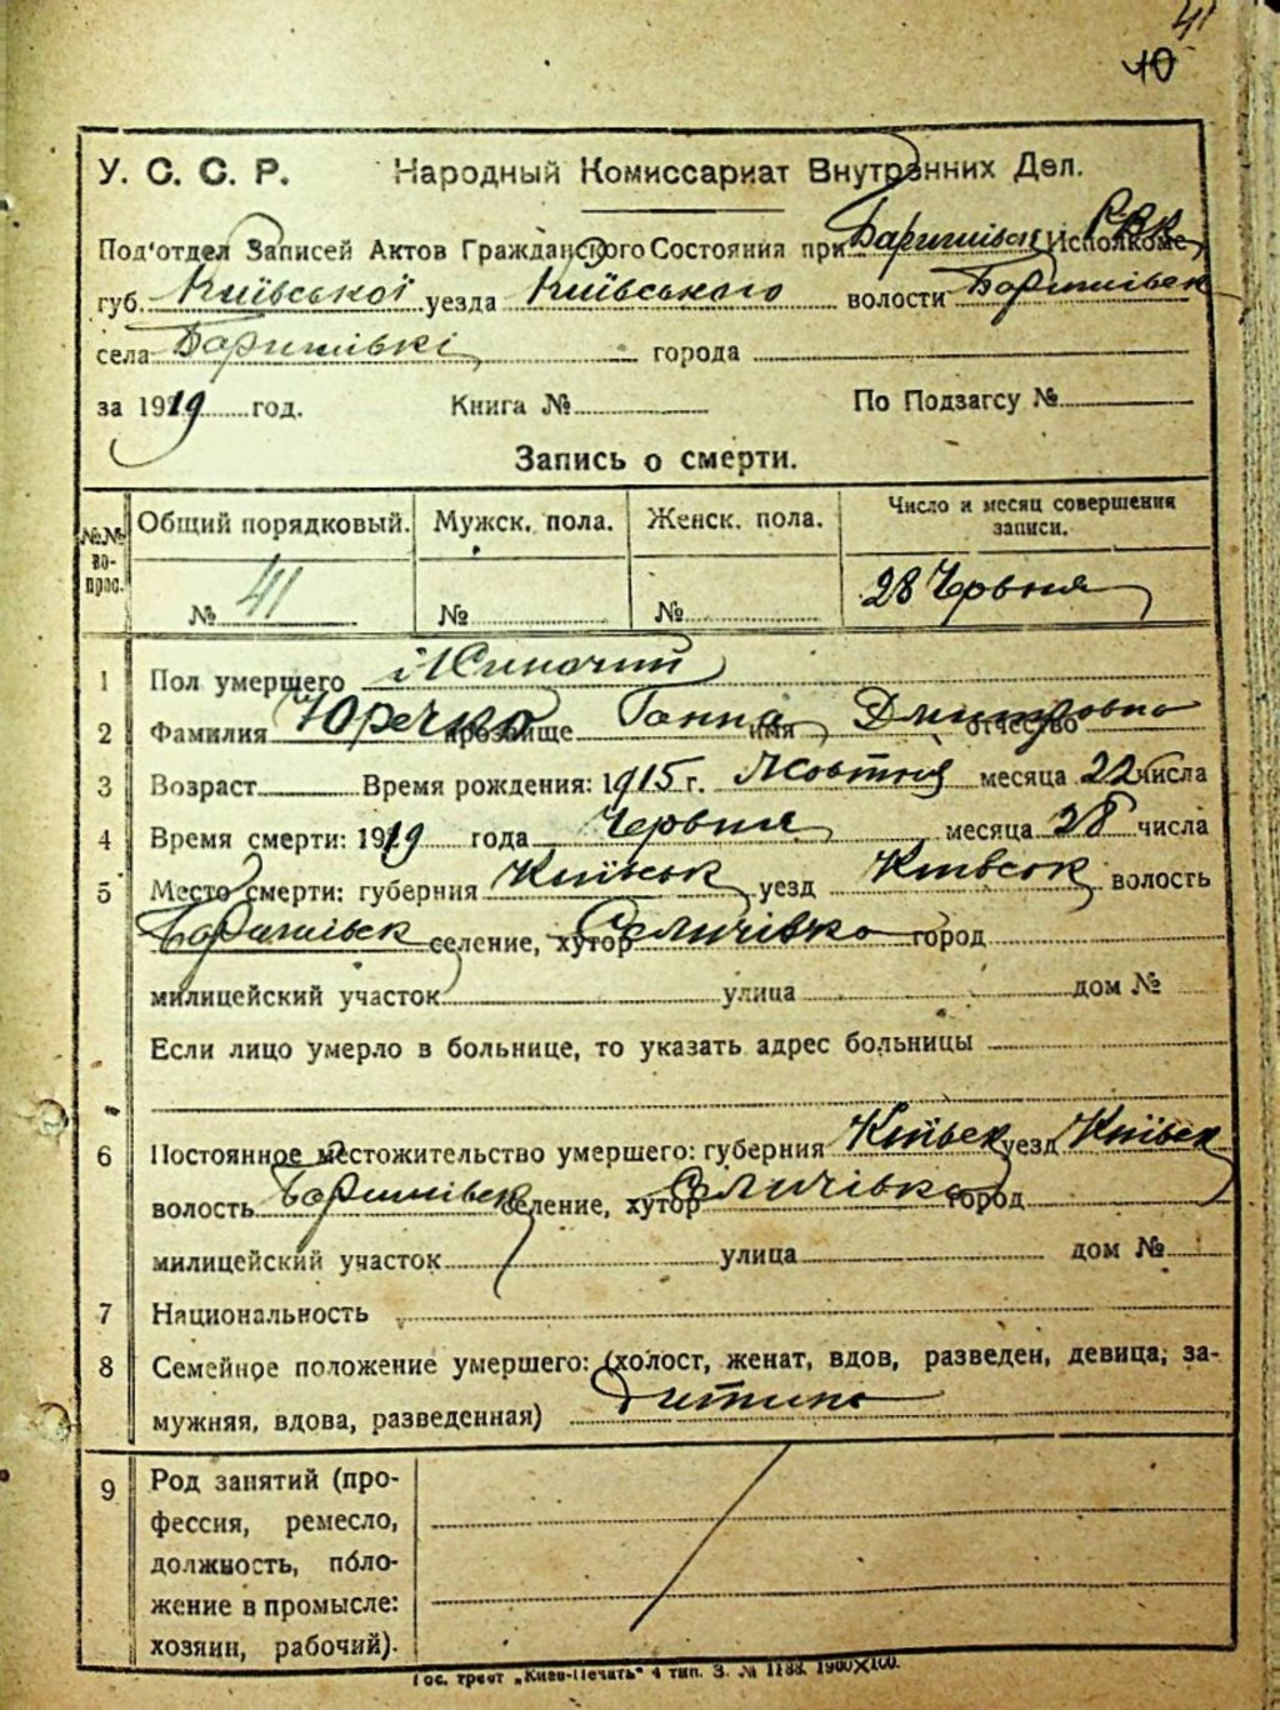 41
40
У. С. С. Р. Народный Комиссариат Внутренних Дел.
Под'отдел Записей Актов Гражданского Состояния при Баришівск РВК Исполкоме
губ. Київської уезда Київського волости Баришівск
села Баришівкі города
за 1919 год. Книга № По Подзагсу №
Запись о смерти.
№№ вопрос. Общий порядковый. Мужск. пола. Женск. пола. Число и месяц совершения записи.
№ 41 № № 28 Червня
1 Пол умершего Жиночий
2 Фамилия Юречко прозвище Ганна имя Дмитровна отчество
3 Возраст Время рождения: 1915 г. Жовтня месяца 22 числа
4 Время смерти: 1919 года Червня месяца 28 числа
5 Место смерти: губерния Київськ уезд Київськ волость
Баришівск селение, хутор Селичівка город
милицейский участок улица дом №
Если лицо умерло в больнице, то указать адрес больницы
6 Постоянное местожительство умершего: губерния Київск уезд Київск
волость Баришівск селение, хутор Селичівка город
милицейский участок улица дом №
7 Национальность
8 Семейное положение умершего: (холост, женат, вдов, разведен, девица, за-
мужняя, вдова, разведенная) Дитина
9 Род занятий (про-
фессия, ремесло,
должность, поло-
жение в промысле:
хозяин, рабочий).
Гос. трест „Киев-Печать" 4 тип. З. № 1188. 1900X100.